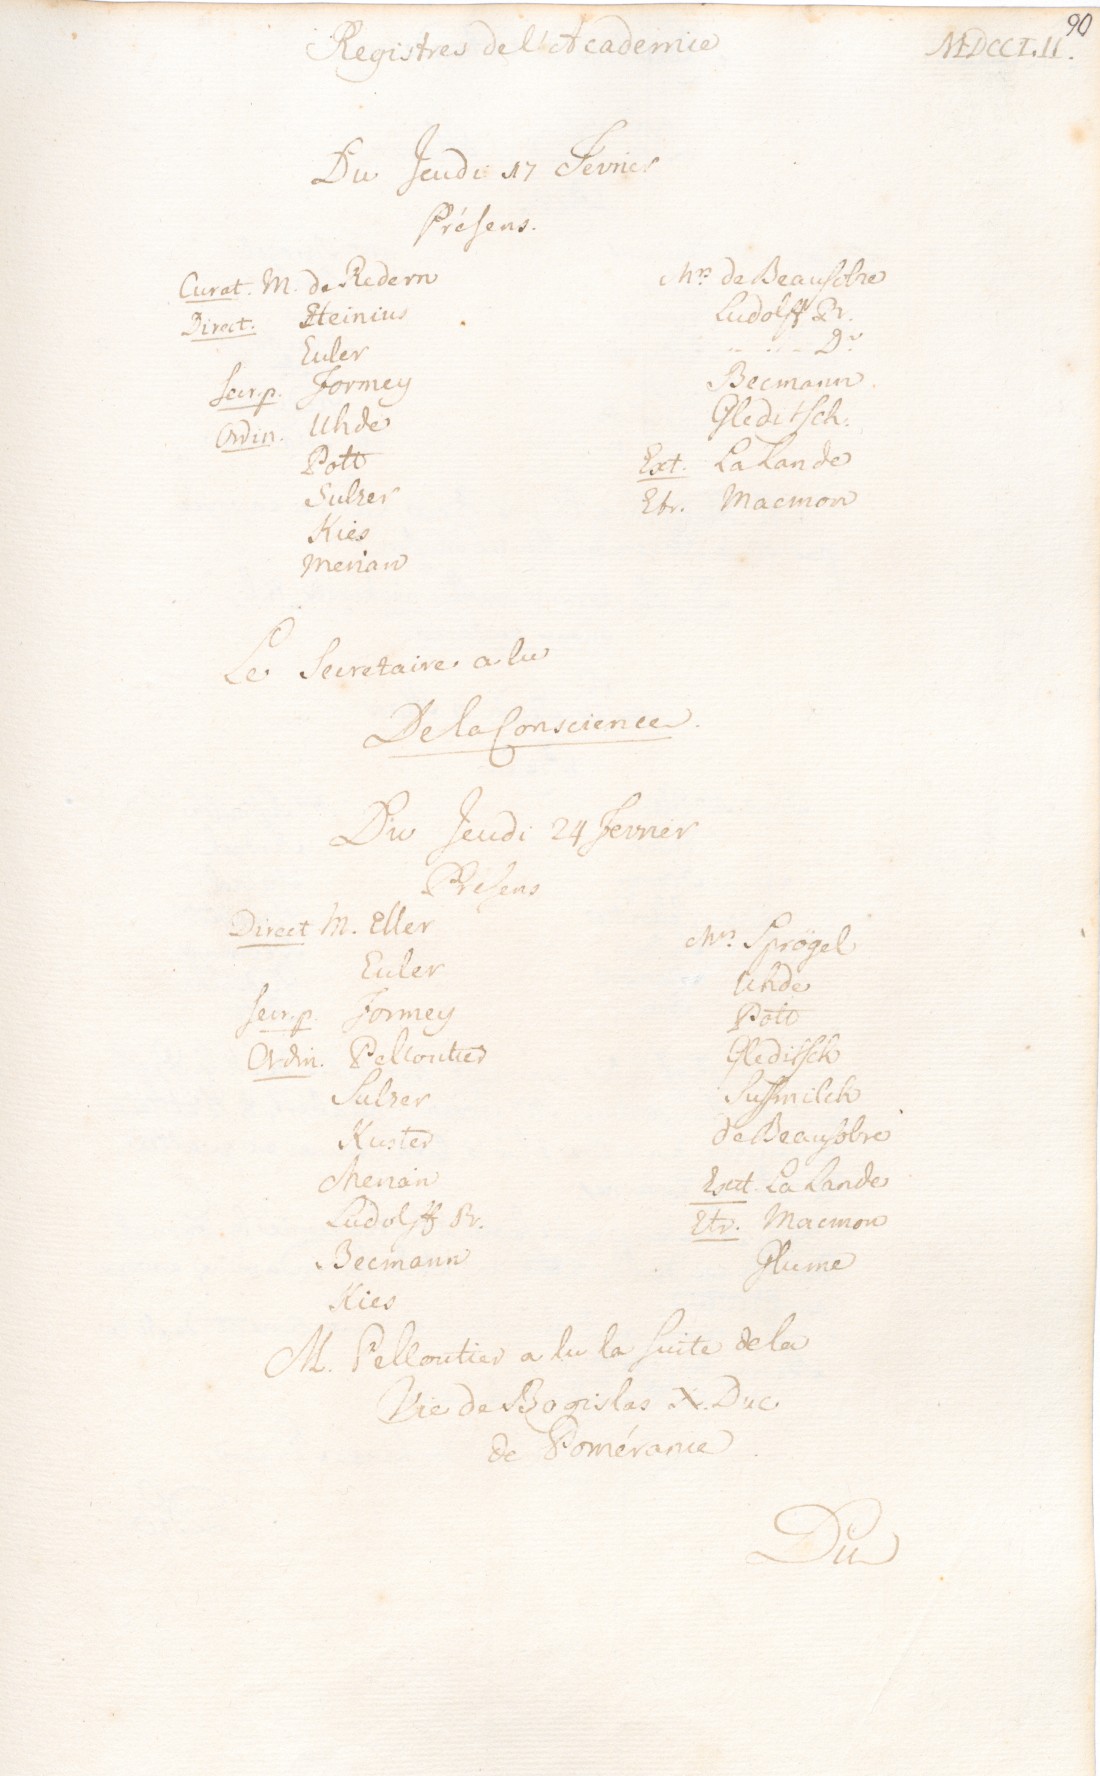 90
Registres de l'Academie MDCCLII.
Du Jeudi 17 Fevrier
Présens.
Curat. M. de Redern
Direct. Heinius
Euler
Secr.p. Formey
Ordin. Uhde
Pott
Sulzer
Kies
Merian
Mrs de Beausobre
Ludolff Pr.
- - - - Dr
Becmann.
Gleditsch.
Ext. La Lande
Etr. Macmon
Le Secretaire a lu
De la Conscience.
Du Jeudi 24 Fevrier
Présens
Direct M. Eller
Euler
Secr.p. Formey
Ordin. Pelloutier
Sulzer
Kuster
Merian
Ludolff Pr.
Becmann
Kies
Mrs Sprögel
Uhde
Pott
Gleditsch
Susmilch
de Beausobre
Ext. La Lande
Etr. Macmon
Glume
M. Pelloutier a lu la suite de la
Vie de Bogislas X. Duc
de Poméranie
Du